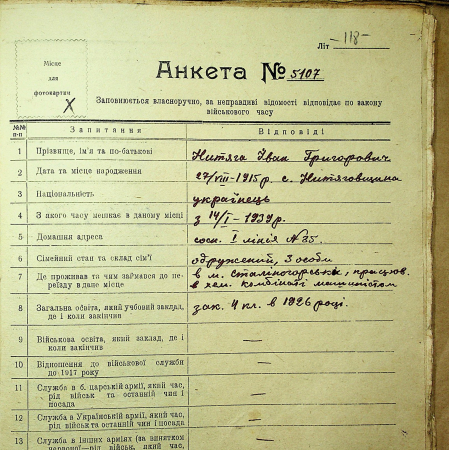 Літ -118-
Місце
для
фотокартки
Х
Анкета № 5107
Заповнюється власноручно, за неправдиві відомості відповідає по закону
військового часу
№№ п-п Запитання Відповіді
1 Прізвище, ім'я та по-батькові Нитяга Іван Григорович
2 Дата та місце народження 27/VIII-1915 р. с. Нитяговщина
3 Національність українець
4 З якого часу мешкає в даному місці з 14/I-1939 р.
5 Домашня адреса сосн. I лінія №35.
6 Сімейний стан та склад сім'ї одружений, 3 особи
7 Де проживав та чим займався до пе-
реїзду в дане місце
в м. Сталіногорськ, працюв.
в хем. комбінаті машиністом
8 Загальна освіта, який учбовий заклад,
де і коли закінчив
зак. 4 кл. в 1926 році.
9 Військова освіта, який заклад, де і
коли закінчив —
10 Відношення до військової служби
до 1917 року —
11 Служба в б. царській армії, який час,
рід військ та останній чин і
посада —
12 Служба в Українській армії, який час,
рід військ та останній чин і посада —
13 Служба в інших арміях (за винятком